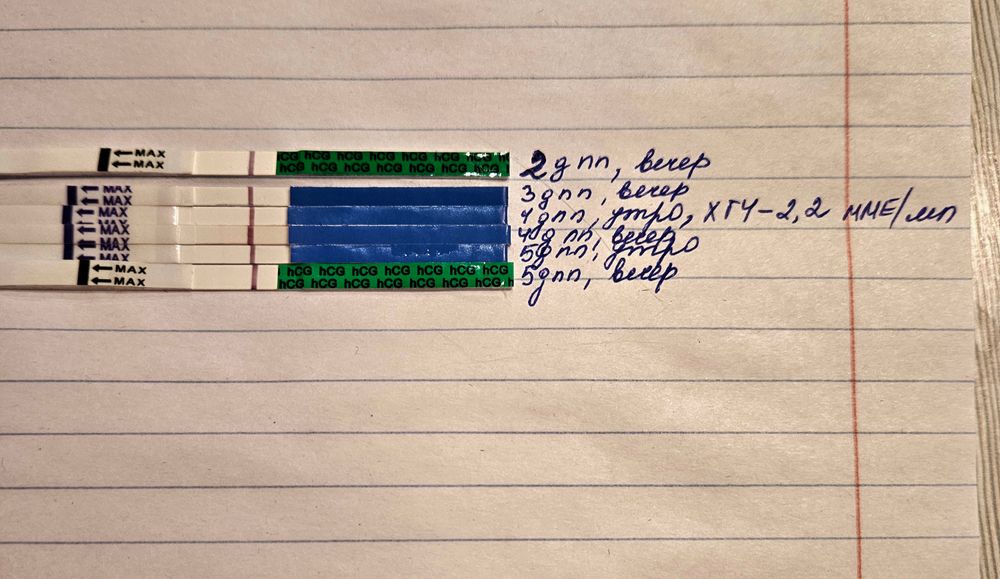 ← MAX
← MAX
hCG hCG hCG hCG hCG hCG
hCG hCG hCG hCG hCG hCG
2дпп, вечер
MAX
← MAX
3дпп, вечер
← MAX
MAX
4дпп, утро, ХГЧ-2,2 мМЕ/мл
← MAX
4дпп, вечер
← MAX
MAX
5дпп, утро
← MAX
← MAX
hCG hCG hCG hCG hCG hCG
hCG hCG hCG hCG hCG hCG
5дпп, вечер